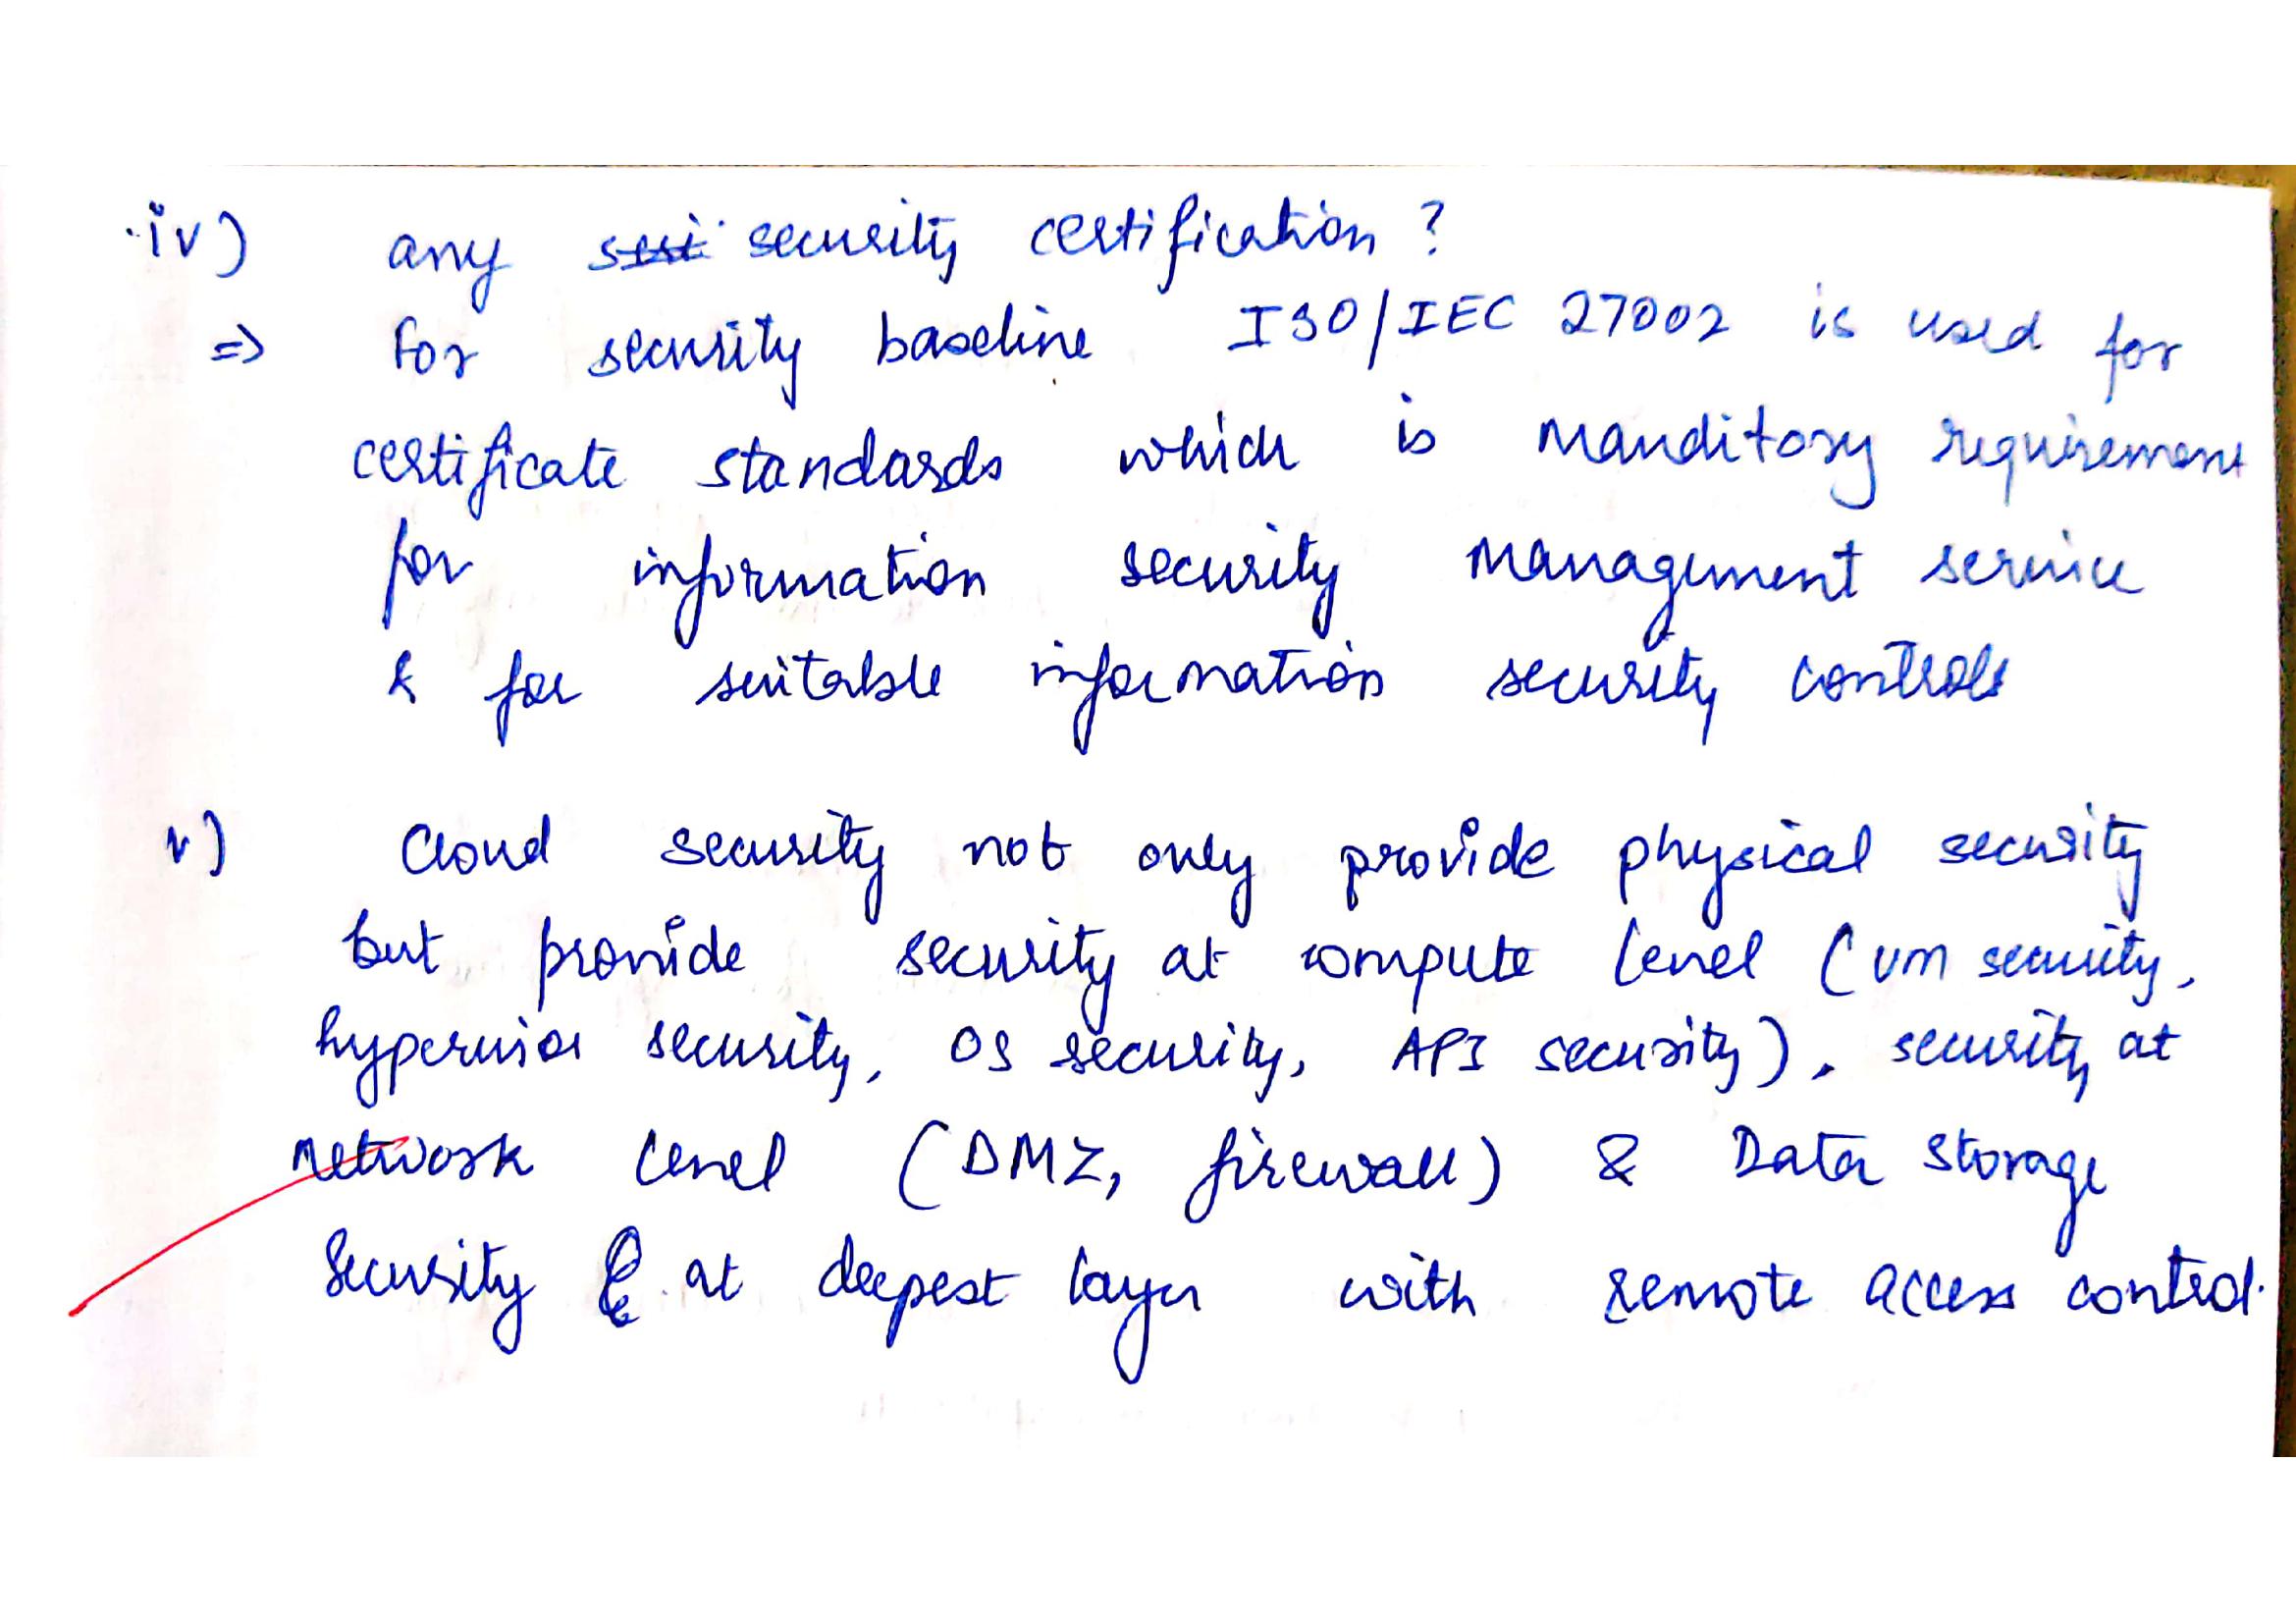 iv) any security certification ?
=> For security baseline ISO/IEC 27002 is used for
certificate standards which is manditory requirement
for information security management service
& for suitable information security controls
v) Cloud security not only provide physical security
but provide security at compute level (VM security,
hypervisor security, OS security, API security), security at
network level (DMZ, firewall) & Data Storage
Security at deepest layer with remote access control.